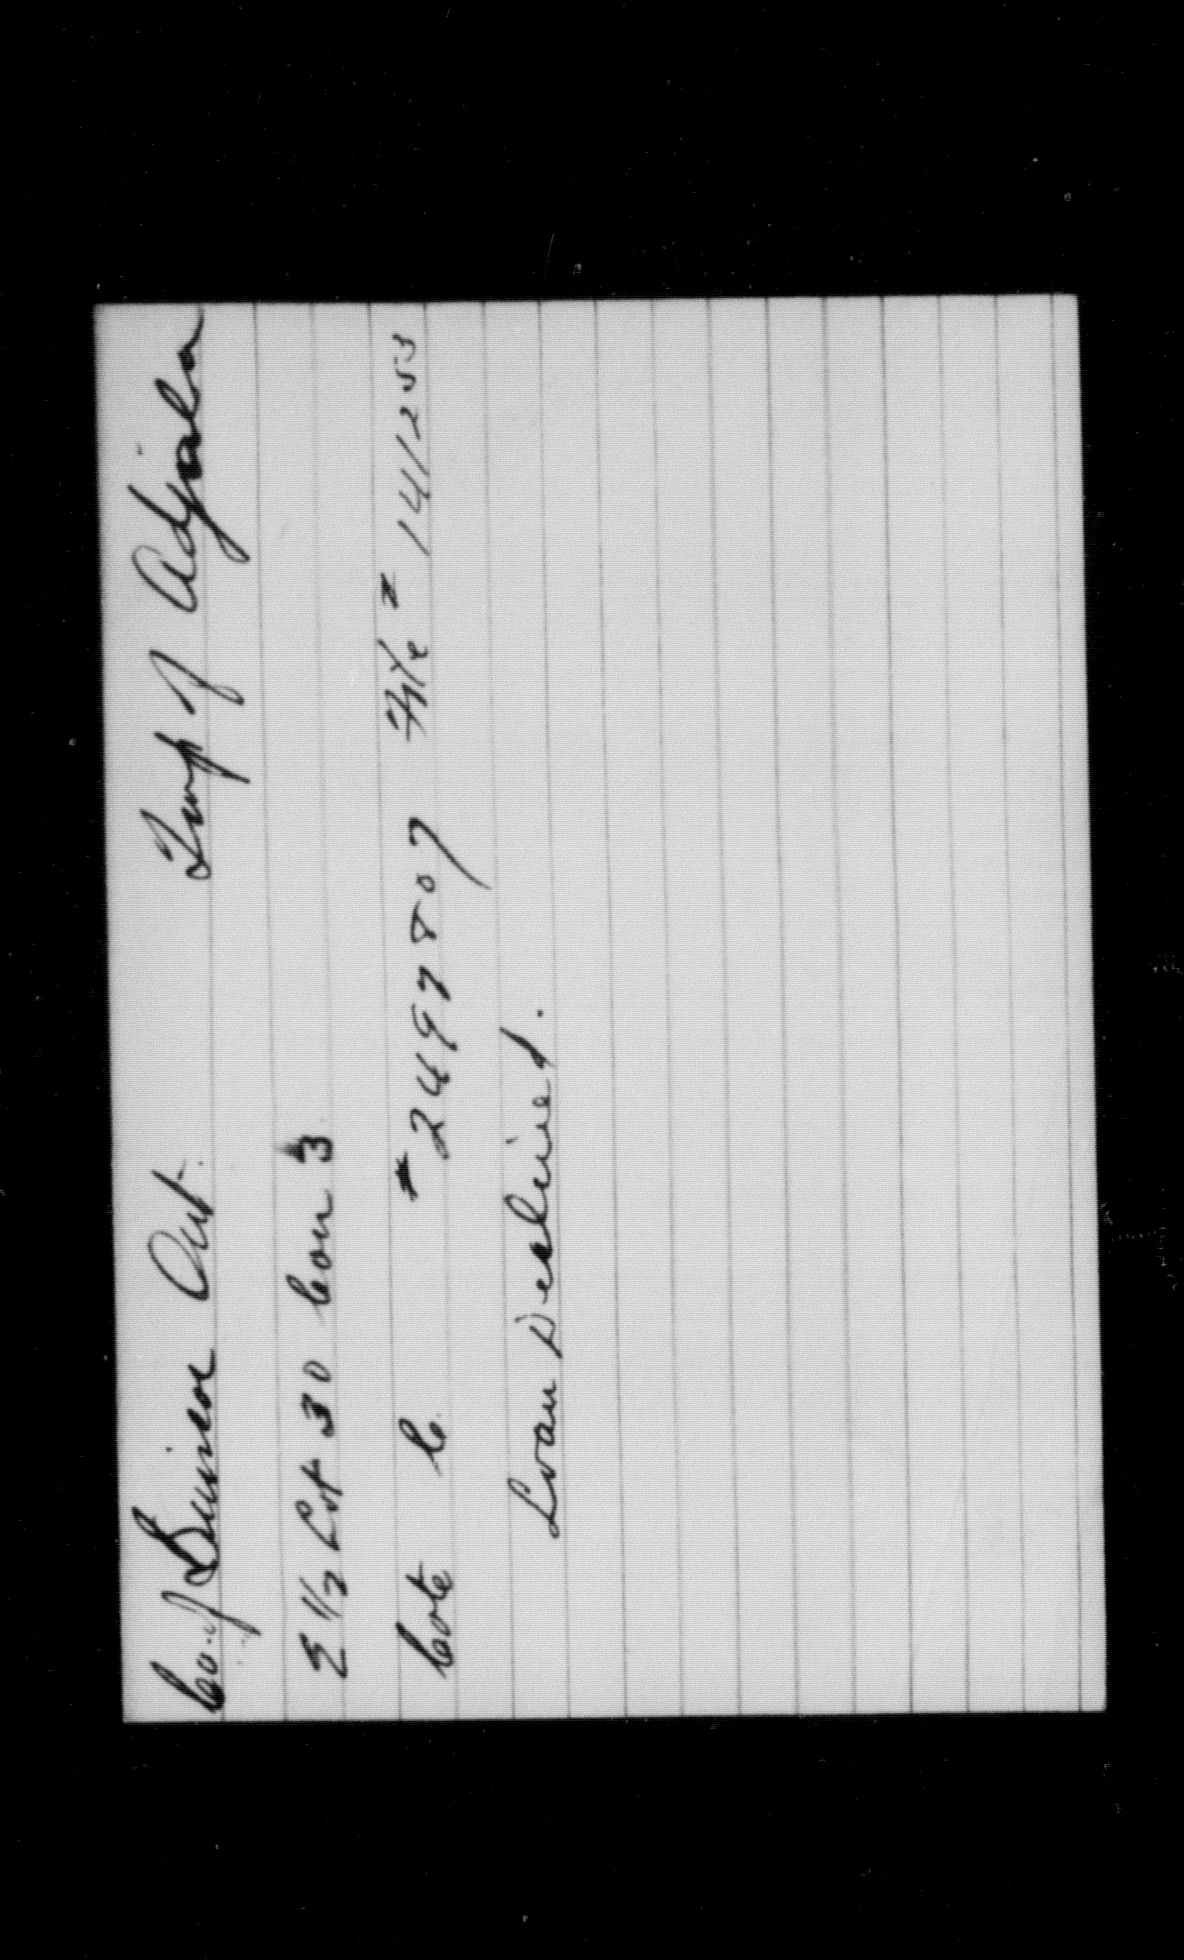 Co. of Simcoe Ont. Twp of Adjala
E 1/2 Lot 30 Con 3
Cote C. # 2497807 File # 141253
Loan Declined.